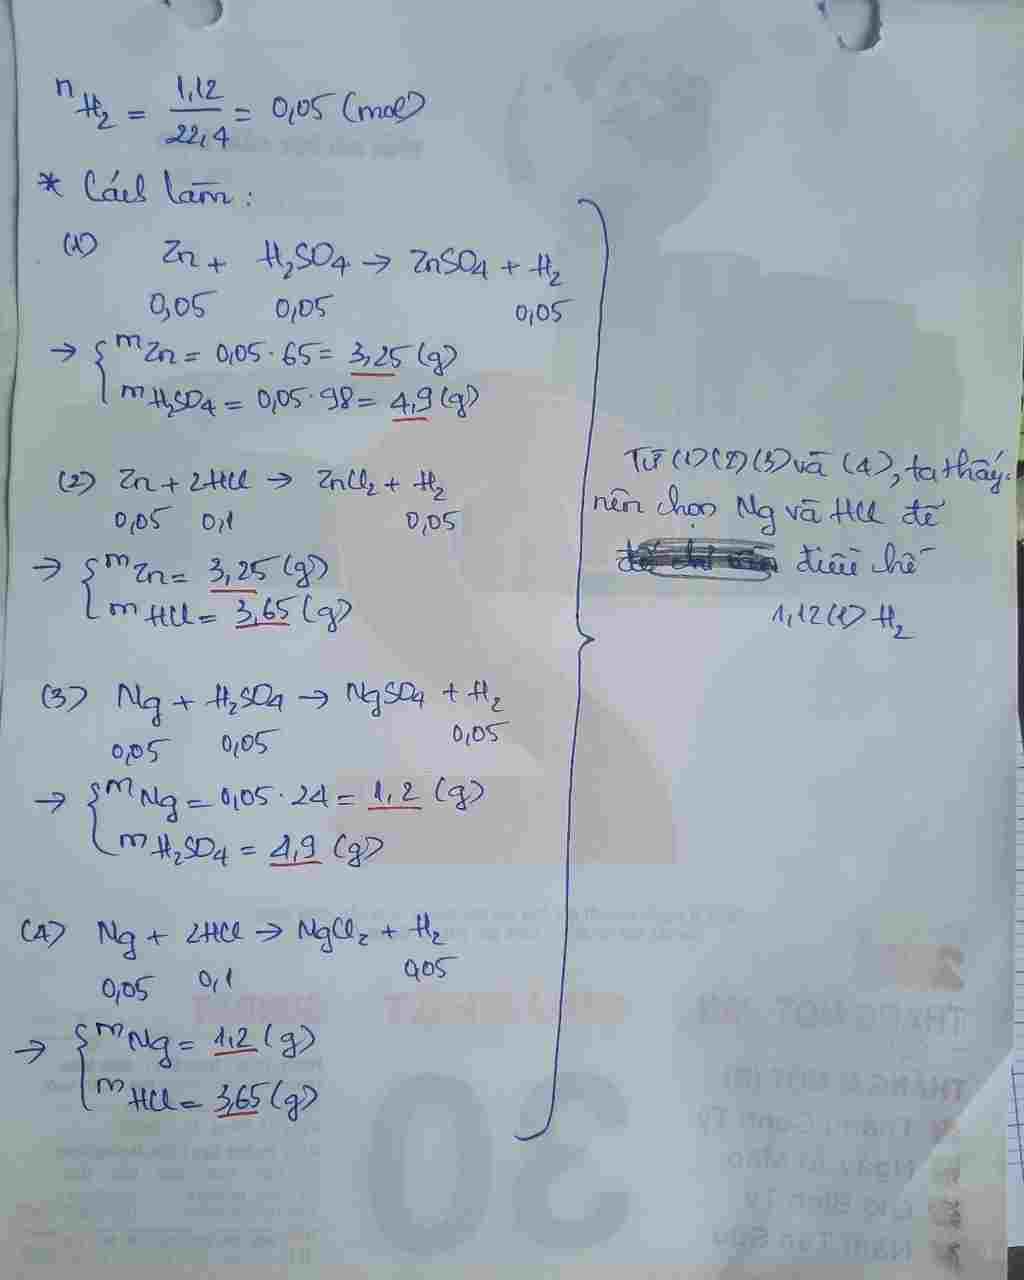 nH₂ = 1,12 / 22,4 = 0,05 (mol)
* Cách làm:
(1) Zn + H₂SO₄ → ZnSO₄ + H₂
0,05 0,05 0,05
→ { mZn = 0,05 · 65 = 3,25 (g)
mH₂SO₄ = 0,05 · 98 = 4,9 (g)
(2) Zn + 2HCl → ZnCl₂ + H₂
0,05 0,1 0,05
→ { mZn = 3,25 (g)
mHCl = 3,65 (g)
(3) Mg + H₂SO₄ → MgSO₄ + H₂
0,05 0,05 0,05
→ { mMg = 0,05 · 24 = 1,2 (g)
mH₂SO₄ = 4,9 (g)
(4) Mg + 2HCl → MgCl₂ + H₂
0,05 0,1 0,05
→ { mMg = 1,2 (g)
mHCl = 3,65 (g)
Từ (1) (2) (3) và (4), ta thấy
nên chọn Mg và HCl để
điều chế
1,12 (l) H₂
30